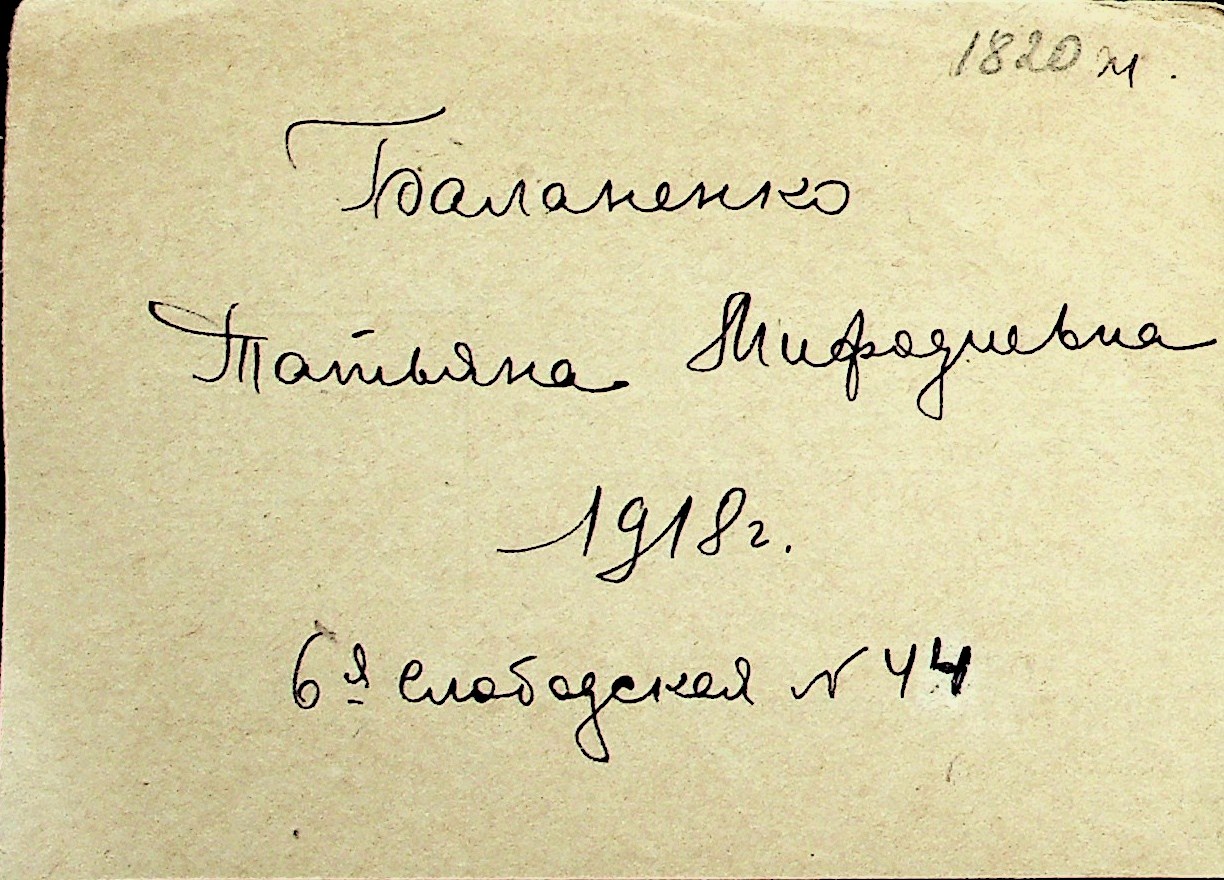 1820 ж.
Баланенко
Татьяна Мифодиевна
1918г.
6я Слободская N 44